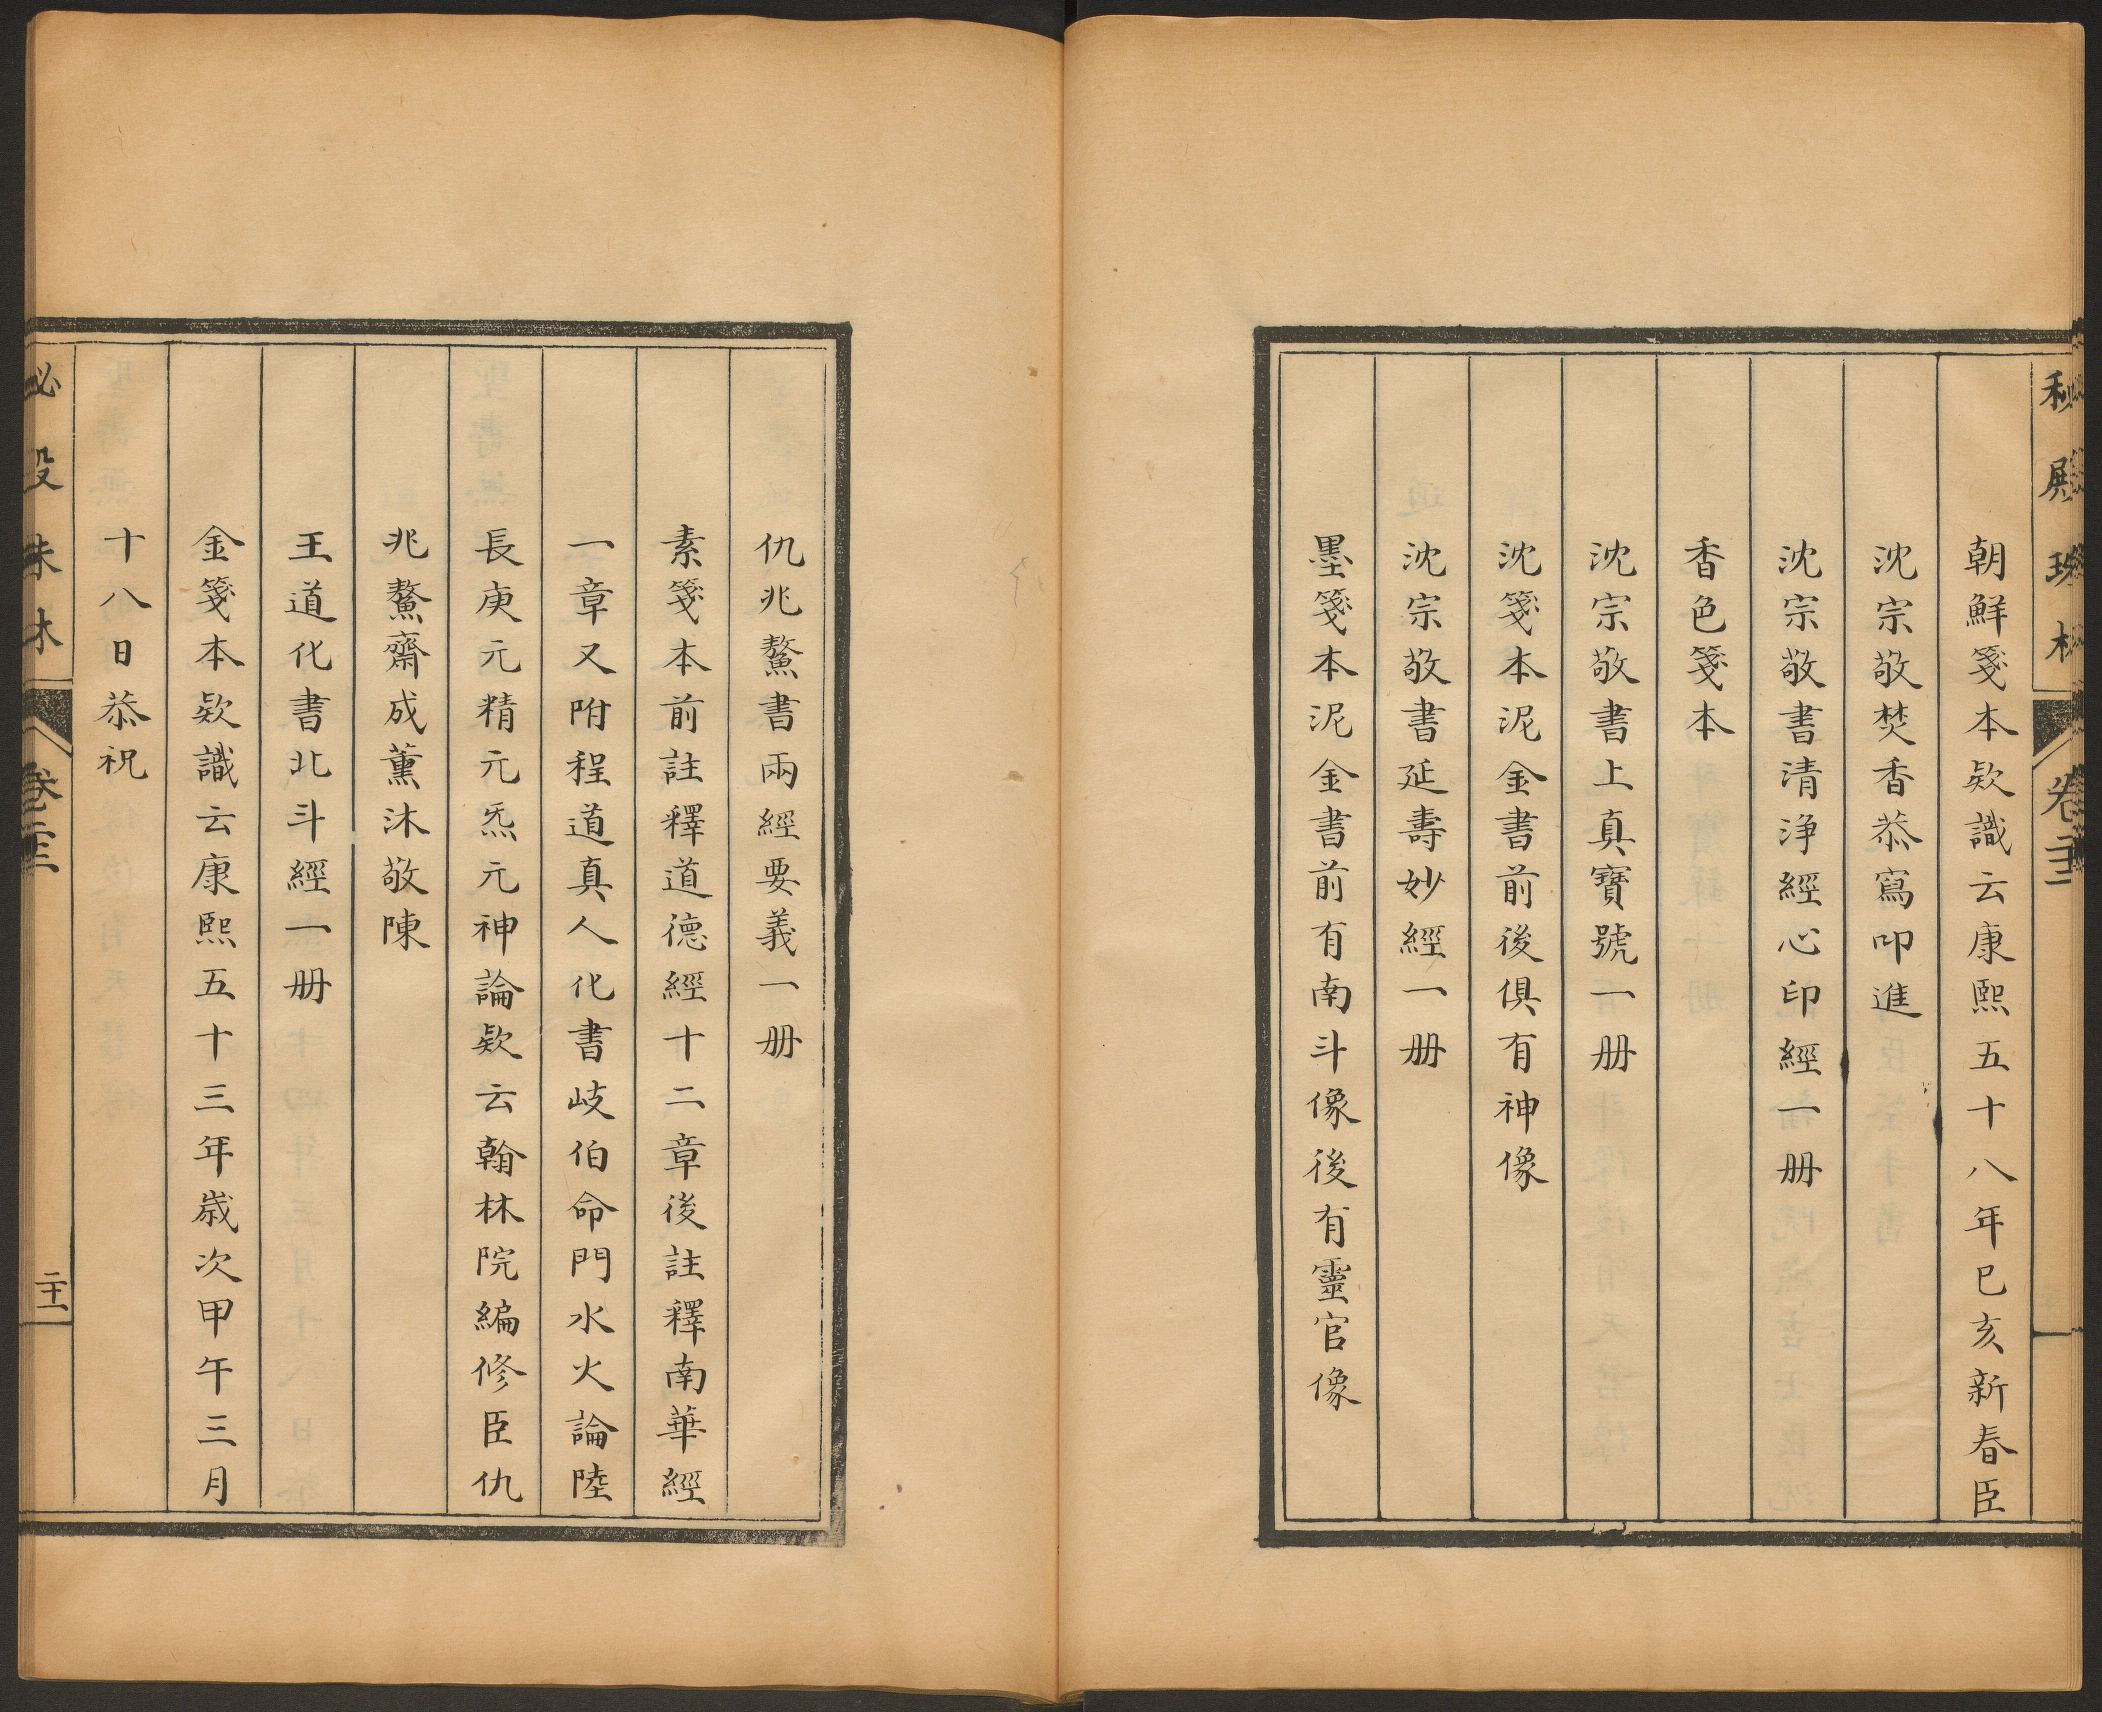 秘殿珠林 卷二十三
朝鮮箋本欵識云康熙五十八年巳亥新春臣
沈宗敬焚香恭寫叩進
沈宗敬書清淨經心印經一册
香色箋本
沈宗敬書上真寶號一册
沈箋本泥金書前後俱有神像
沈宗敬書延壽妙經一册
墨箋本泥金書前有南斗像後有靈官像
仇兆鰲書兩經要義一册
素箋本前註釋道德經十二章後註釋南華經
一章又附程道真人化書岐伯命門水火論陸
長庚元精元炁元神論欵云翰林院編修臣仇
兆鰲齋成薰沐敬陳
王道化書北斗經一册
金箋本欵識云康熙五十三年歲次甲午三月
十八日恭祝
秘殿珠林 卷二十三 二十一